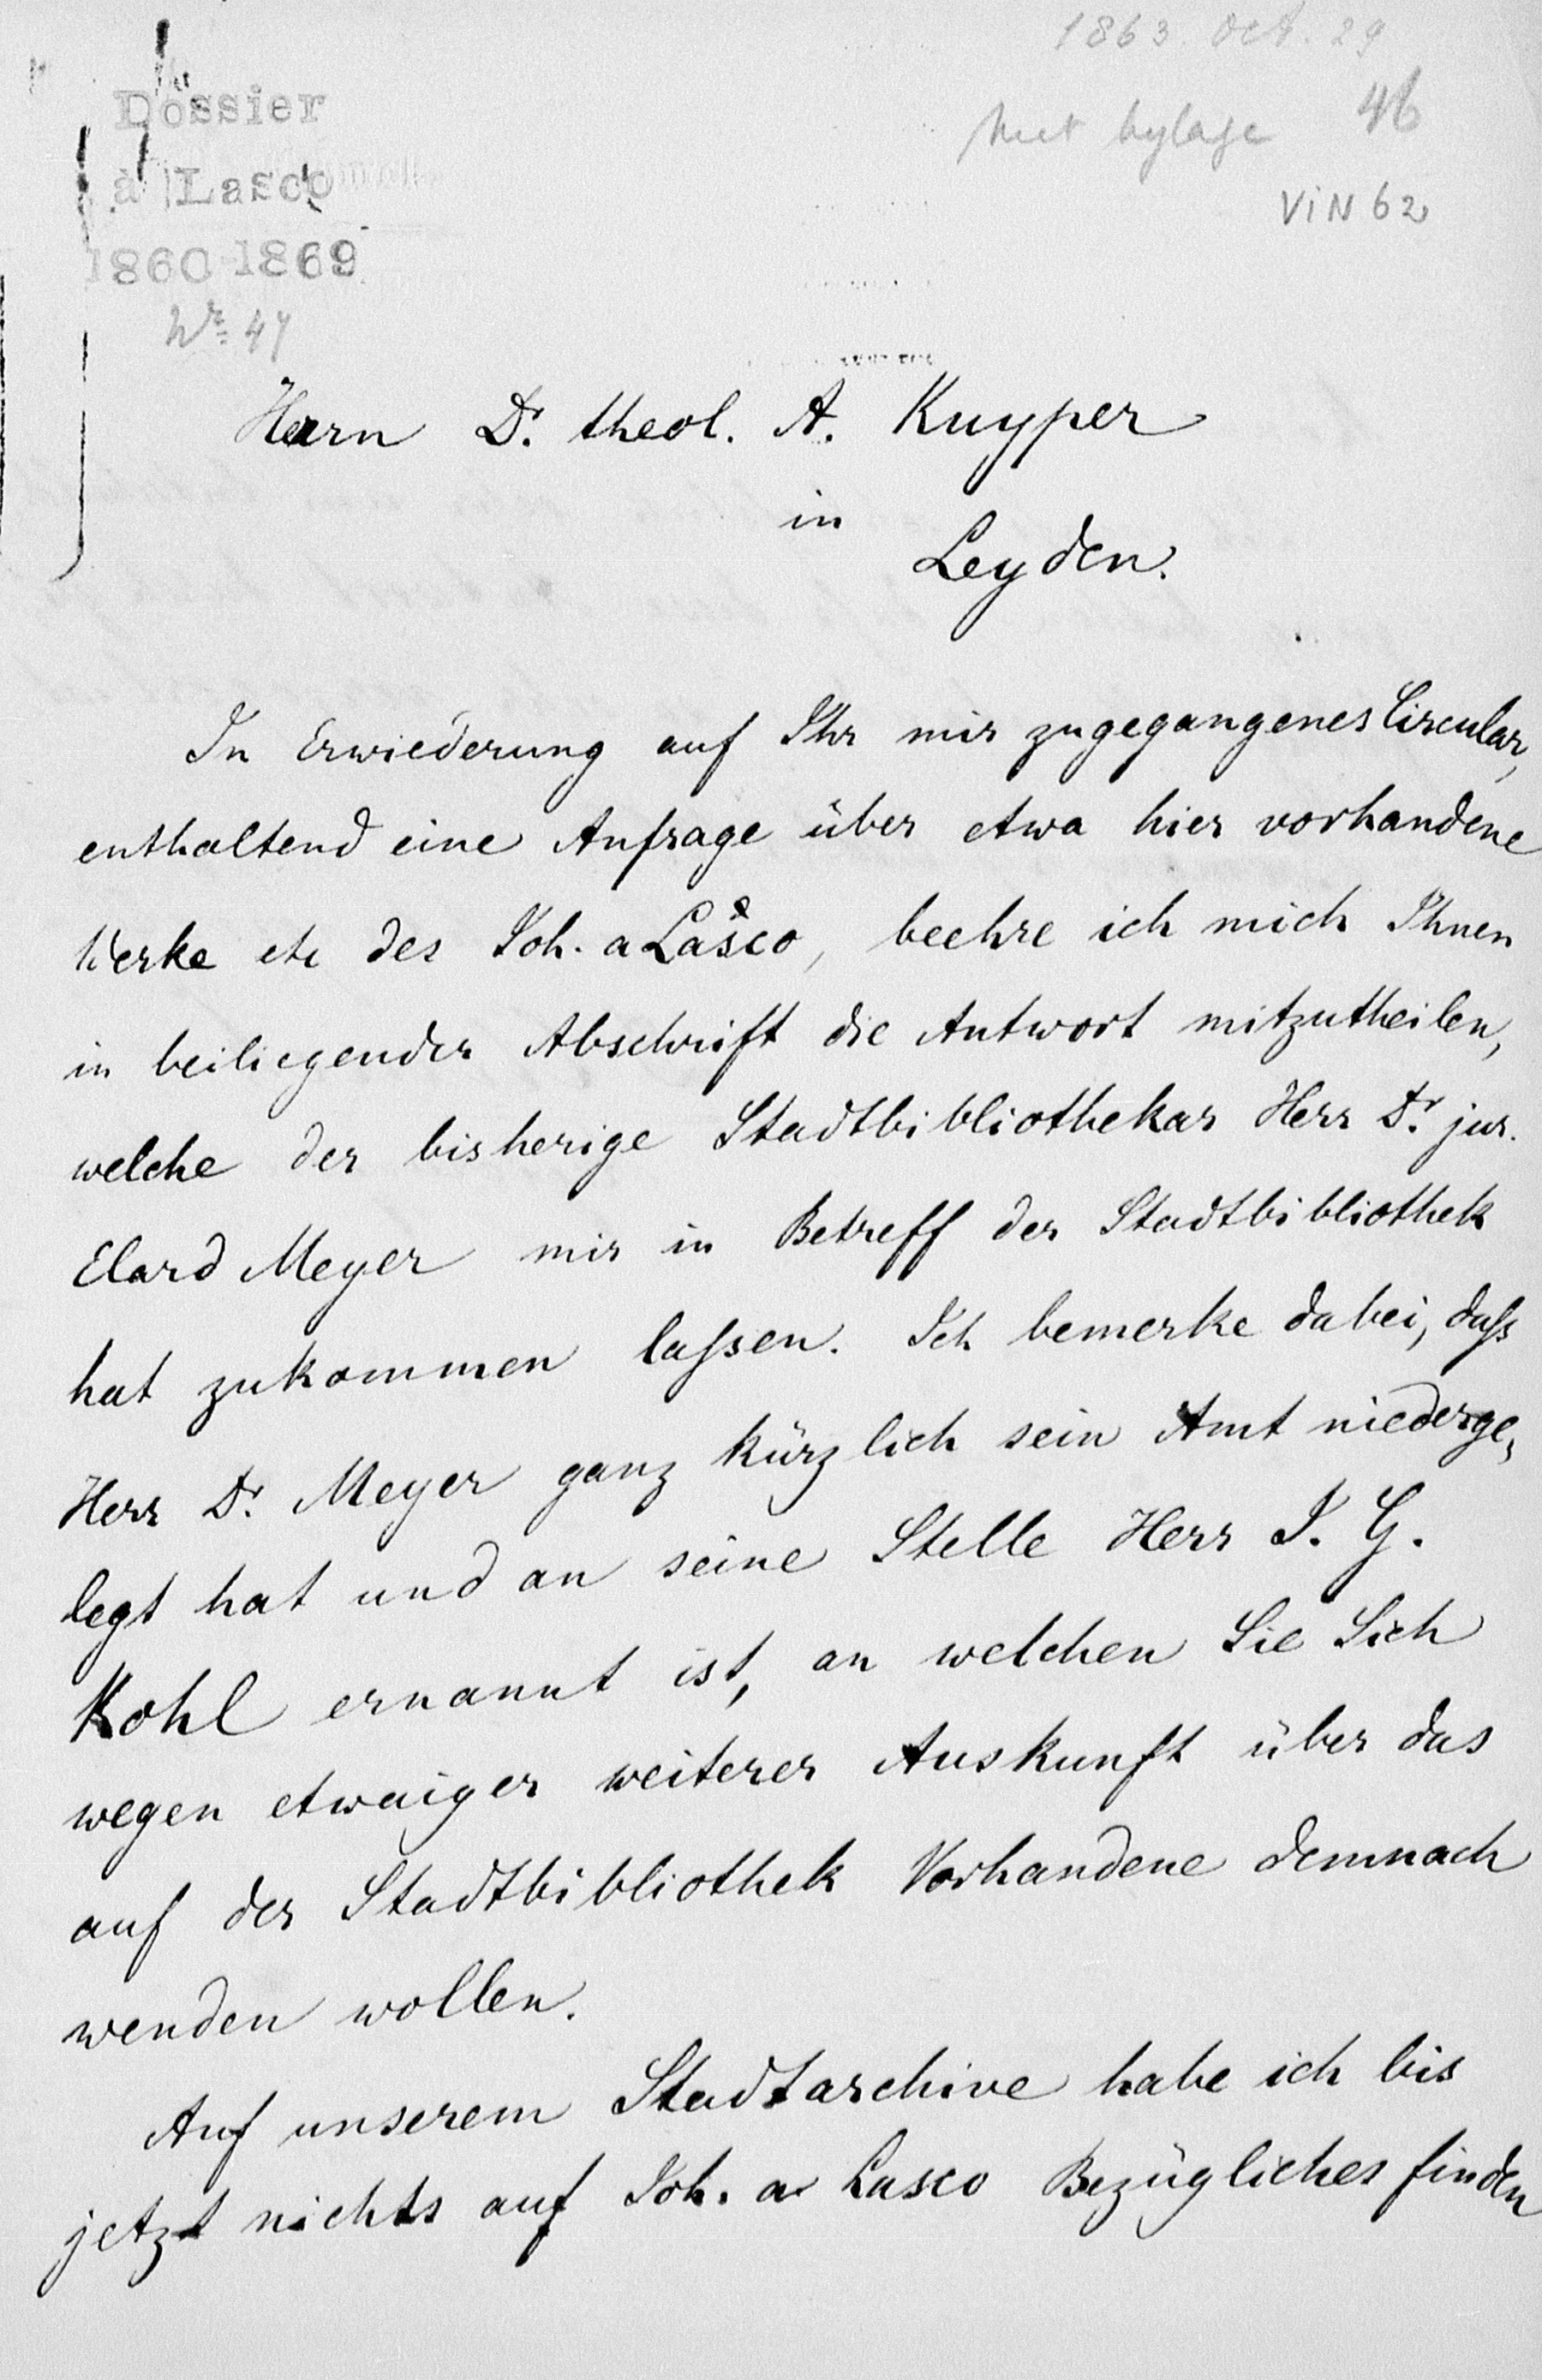 1863. Oct. 29
46
Met bylage
VIN 62
Dossier
à Lasco
1860-1869
Nr. 47
Herrn Dr. theol. A. Kuyper
in
Leyden.
In Erwiederung auf Ihr mir zugegangenes Circular,
enthaltend eine Anfrage über etwa hier vorhandene
Werke etc des Joh. a Lasco, beehre ich mich Ihnen
in beiliegender Abschrift die Antwort mitzutheilen,
welche der bisherige Stadtbibliothekar Herr Dr. jur.
Elard Meyer mir in Betreff der Stadtbibliothek
hat zukommen laſsen. Ich bemerke dabei, daſs
Herr Dr. Meyer ganz kürzlich sein Amt niederge,
legt hat und an seine Stelle Herr J. G.
Kohl ernannt ist, an welchen Sie Sich
wegen etwaiger weiterer Auskunft über das
auf der Stadtbibliothek Vorhandene demnach
wenden wollen.
Auf unserem Stadtarchive habe ich bis
jetzt nichts auf Joh. a Lasco Bezügliches finden